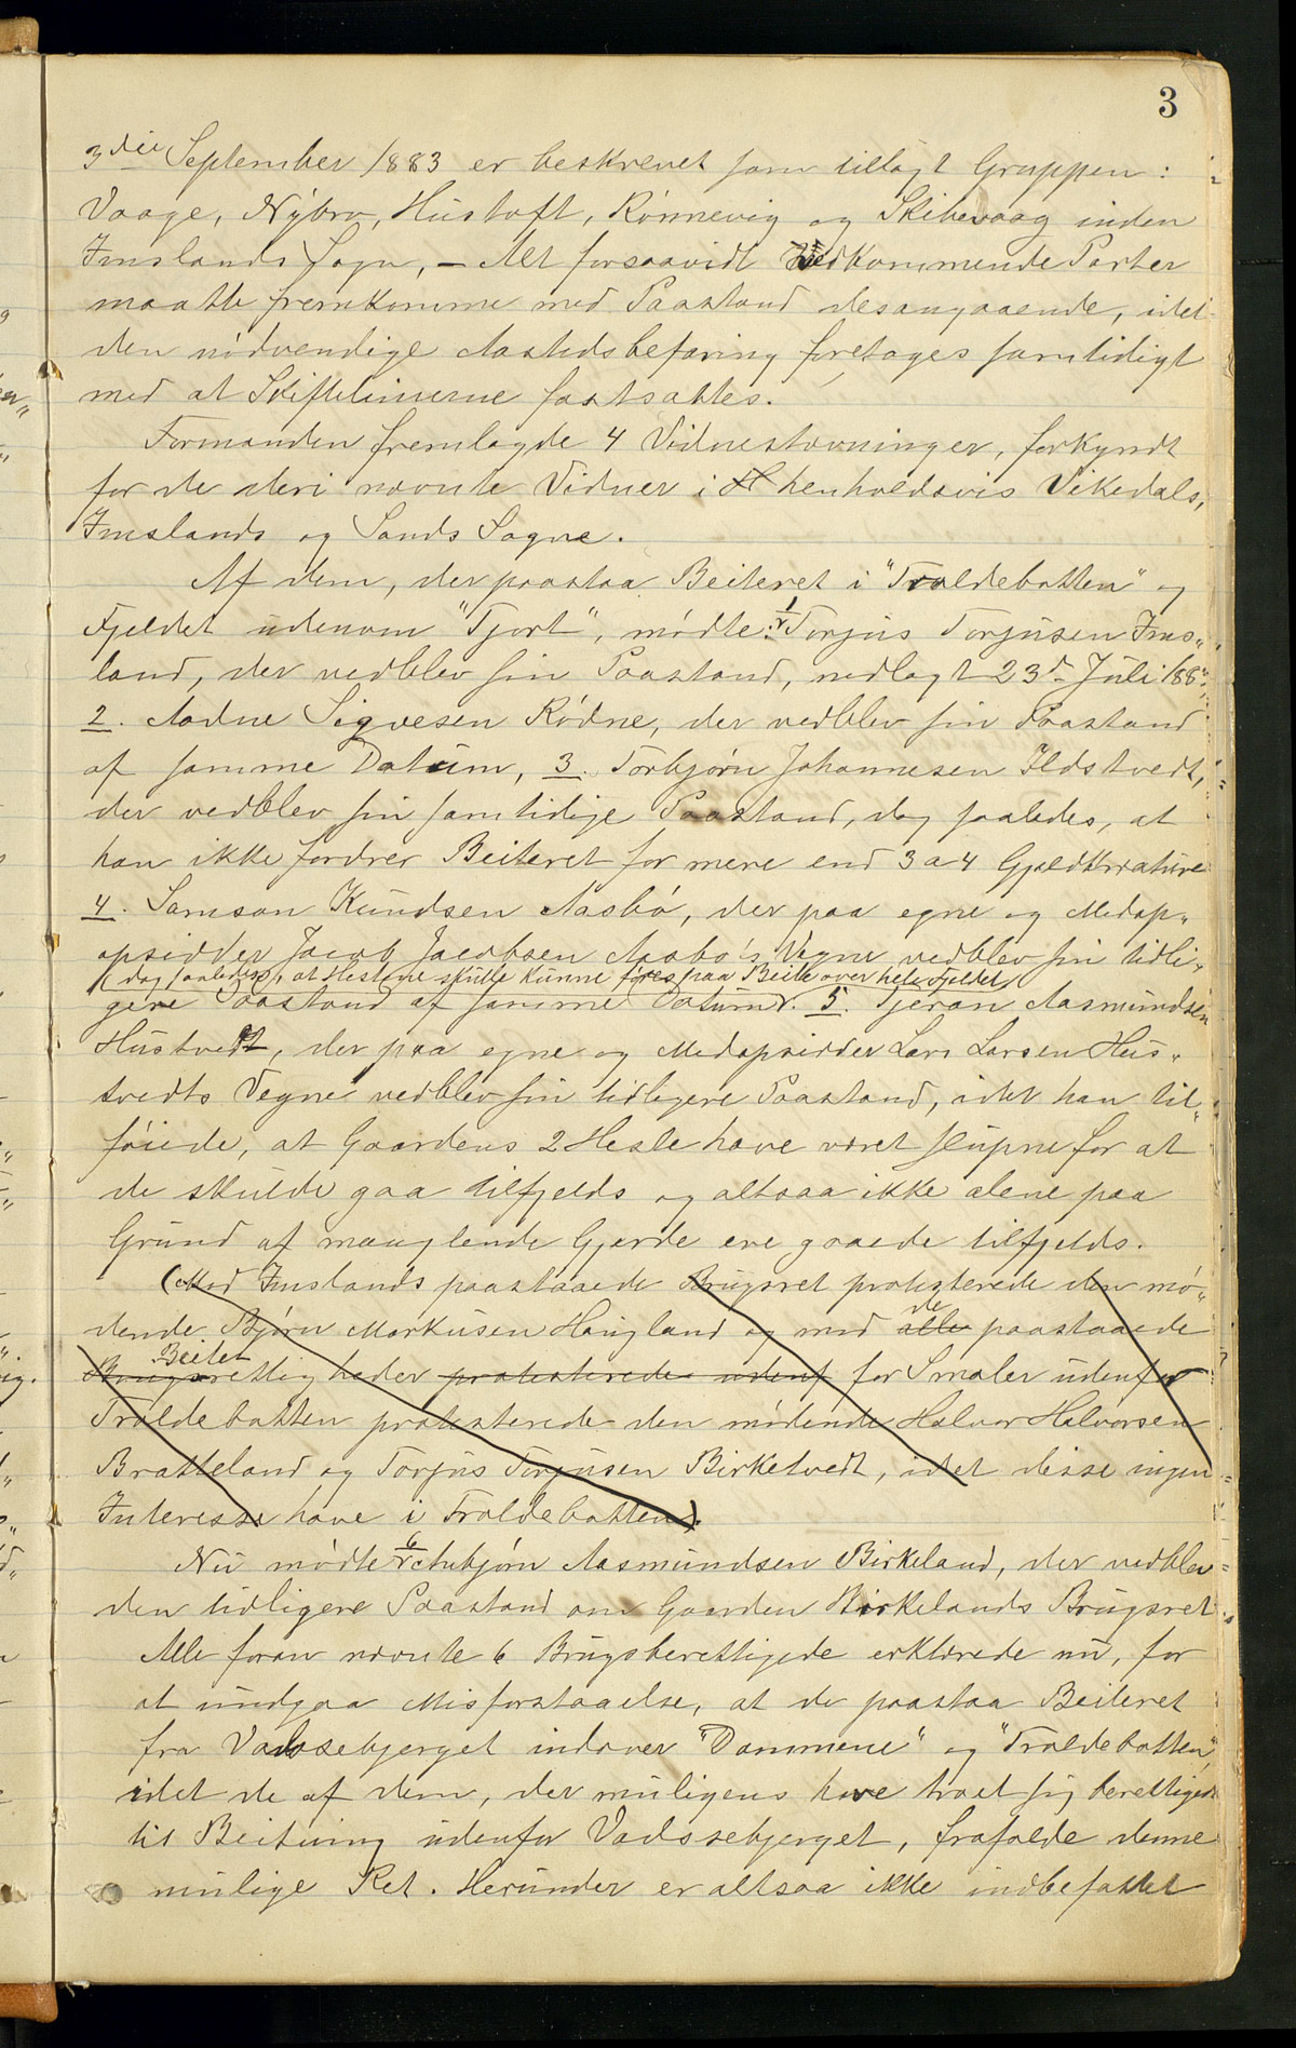 3
3die September 1883 er beskrevet som tillagt Gruppen:
Vaage, Nybro, Hustoft, Rönnevig og Skibevaag inden
Imslands Sogn, – Alt forsaavidt Vedkommende Parter
maatte fremkomme med Paastand desangaaende, idet
den nödvendige Aastedsbefaring foretages samtidigt
med at Skiftelinierne fastsattes.
Formanden fremlagde 4 Vidnestævninger, forkyndt
for de deri nævnte Vidner i henholdsvis Vikedals,
Imslands og Sands Sogne.
Af dem, der paastaa Beiteret i "Troldebotten" og
Fjeldet udenom "Tjort", mödte: 1. Torjus Torjusen Ims„
land, der vedblev sin Paastand, nedlagt 23d Juli 188
2. Aadne Sigvesen Rödne, der vedblev sin Paastand
af samme Datum, 3. Torbjörn Johannesen Ildstvedt,
der vedblev sin samtidige Paastand, dog saaledes, at
han ikke fordrer Beiteret for mere end 3 a 4 Gjeldkreature
4. Samson Knudsen Aasbö, der paa egne og Medop„
opsidder Jacob Jacobsen Aasbö's Vegne vedblev sin tidli„
(dog saaledes, at Hestene skulle kunne föres paa Beite over hele Fjeldet)
gere Paastand af samme Datum. 5. Tjeran Aasmundsen
Hustvedt, der paa egne og Medopsidder Lars Larsen Hus„
tvedts Vegne vedblev sin tidligere Paastand, idet han til„
föiede, at Gaardens 2 Heste have været slupne for at
de skulde gaa tilfjelds og altsaa ikke alene paa
Grund af manglende Gjerde ere gaaede tilfjelds.
(Mod Imslands paastaaede Brugsret protesterede den mö„
dende Björn Markusen Haugland og mod alle de paastaaede
Brugs Beiterettigheder protesterede udenf for Smaler udenfor
Troldebotten protesterede den mödende Halvor Halvorsen
Bratteland og Torjus Torjusen Birketvedt, idet disse ingen
Interesse have i Troldebotten).
Nu mödte 6. Asbjörn Aasmundsen Birkeland, der vedblev
den tidligere Paastand om Gaarden Birkelands Brugsret.
Alle foran nævnte 6 Brugsberettigede erklærede nu, for
at undgaa Misforstaaelse, at de paastaa Beiteret
fra Vadsebjerget indover "Dammene" og "Troldebotten",
idet de af dem, der muligens have troet sig berettiget
til Beitning udenfor Vadssebjerget, frafalde denne
mulige Ret. Herunder er altsaa ikke indbefattet